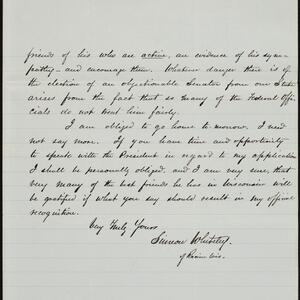 friends of his who are active, an evidence of his sym-
pathy - and encourage them. Whatever danger there is of
the election of an objectionable Senator from our State
arises from the fact that so many of the Federal Offi-
cials do not treat him fairly.
I am obliged to go home to-morrow. I need
not say more. If you have time and opportunity
to speak with the President in regard to my application
I shall be personally obliged, and I am very sure, that
very many of the best friends he has in Wisconsin will
be gratified if what you say should result in my official
recognition.
Very Truly Yours
Simeon
of Wis.